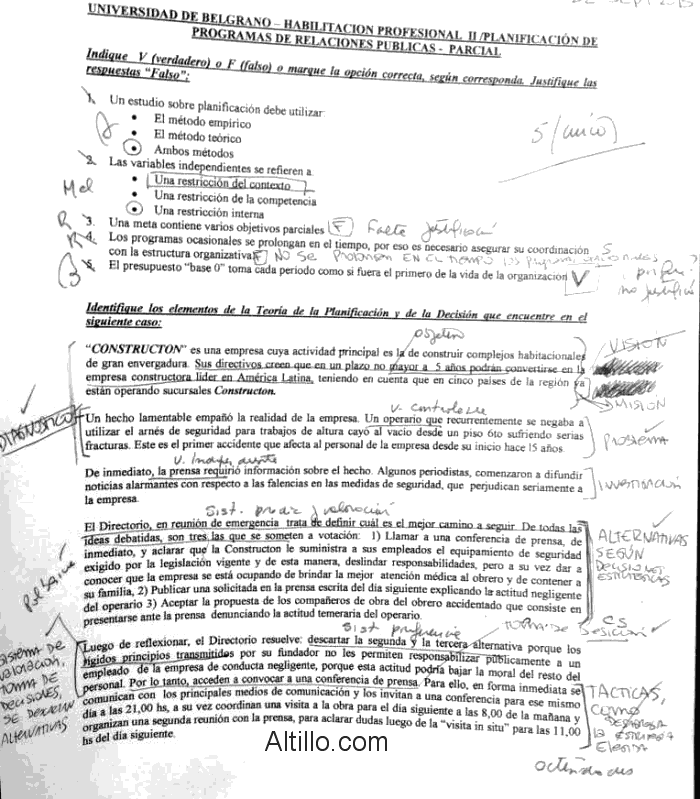 UNIVERSIDAD DE BELGRANO – HABILITACION PROFESIONAL II /PLANIFICACIÓN DE
PROGRAMAS DE RELACIONES PUBLICAS - PARCIAL
Indique V (verdadero) o F (falso) o marque la opción correcta, según corresponda. Justifique las
respuestas "Falso":
1. Un estudio sobre planificación debe utilizar:
• El método empírico
• El método teórico
• Ambos métodos
5 (cinco)
2. Las variables independientes se refieren a
Mal
• Una restricción del contexto
• Una restricción de la competencia
• Una restricción interna
R 3. Una meta contiene varios objetivos parciales F Falta
R 4. Los programas ocasionales se prolongan en el tiempo, por eso es necesario asegurar su coordinación
con la estructura organizativa F NO SE PROLONGAN EN EL TIEMPO
B 5. El presupuesto "base 0" toma cada periodo como si fuera el primero de la vida de la organización V
no justificó
Identifique los elementos de la Teoría de la Planificación y de la Decisión que encuentre en el
siguiente caso:
Objetivo
VISIÓN
"CONSTRUCTON" es una empresa cuya actividad principal es la de construir complejos habitacionales
de gran envergadura. Sus directivos creen que en un plazo no mayor a 5 años podrán convertirse en la
empresa constructora líder en América Latina, teniendo en cuenta que en cinco países de la región ya
están operando sucursales Constructon.
MISIÓN
DIAGNOSTICO
V. Controlable
Un hecho lamentable empañó la realidad de la empresa. Un operario que recurrentemente se negaba a
utilizar el arnés de seguridad para trabajos de altura cayó al vacío desde un piso 6to sufriendo serias
fracturas. Este es el primer accidente que afecta al personal de la empresa desde su inicio hace 15 años.
PROBLEMA
De inmediato, la prensa requirió información sobre el hecho. Algunos periodistas, comenzaron a difundir
noticias alarmantes con respecto a las falencias en las medidas de seguridad, que perjudican seriamente a
la empresa.
INVESTIGACIÓN
Sist. predic y valoración
El Directorio, en reunión de emergencia trata de definir cuál es el mejor camino a seguir. De todas las
ideas debatidas, son tres las que se someten a votación: 1) Llamar a una conferencia de prensa, de
inmediato, y aclarar que la Constructon le suministra a sus empleados el equipamiento de seguridad
exigido por la legislación vigente y de esta manera, deslindar responsabilidades, pero a su vez dar a
conocer que la empresa se está ocupando de brindar la mejor atención médica al obrero y de contener a
su familia, 2) Publicar una solicitada en la prensa escrita del día siguiente explicando la actitud negligente
del operario 3) Aceptar la propuesta de los compañeros de obra del obrero accidentado que consiste en
presentarse ante la prensa denunciando la actitud temeraria del operario.
ALTERNATIVAS
SEGÚN
DECISIONES
ESTRATEGICAS
Sist preferencia
TOMA DE DESICION
Luego de reflexionar, el Directorio resuelve: descartar la segunda y la tercera alternativa porque los
rígidos principios transmitidos por su fundador no les permiten responsabilizar públicamente a un
empleado de la empresa de conducta negligente, porque esta actitud podría bajar la moral del resto del
personal. Por lo tanto, acceden a convocar a una conferencia de prensa. Para ello, en forma inmediata se
comunican con los principales medios de comunicación y los invitan a una conferencia para ese mismo
día a las 21,00 hs, a su vez coordinan una visita a la obra para el día siguiente a las 8,00 de la mañana y
organizan una segunda reunión con la prensa, para aclarar dudas luego de la "visita in situ" para las 11,00
hs del día siguiente.
SISTEMA DE
VALORACION,
TOMA DE
DECISIONES,
SE DESECHAN
ALTERNATIVAS
TACTICAS,
COMO
LA ESTRATEGIA
ELEGIDA
Altillo.com